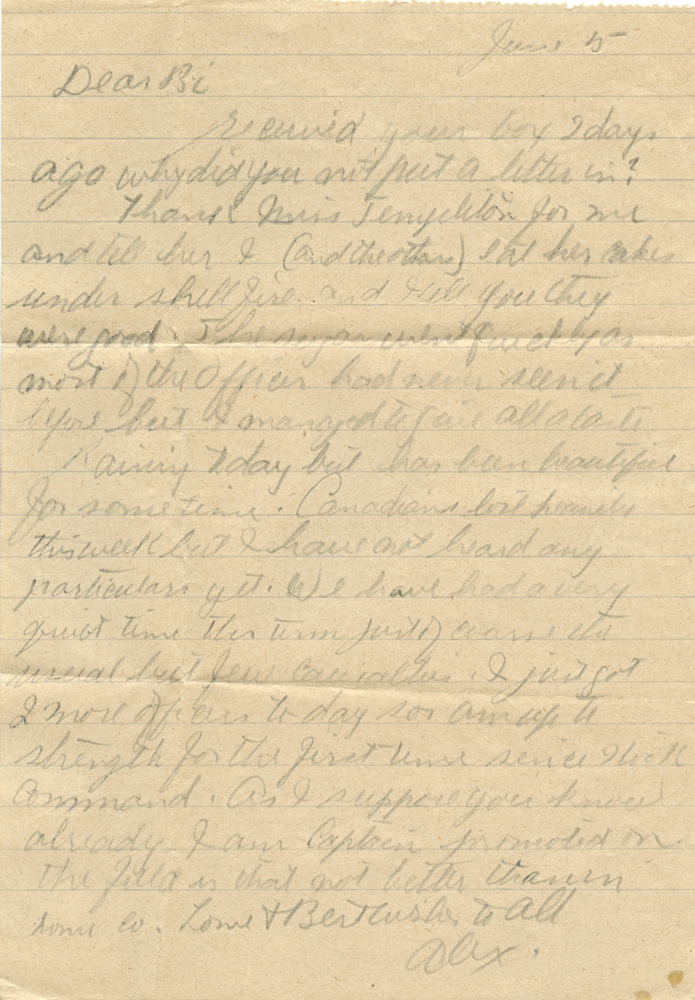 June 15
Dear Bi
Received your box 2 days
ago why did you not put a letter in?
Thank Miss for me
and tell her I (and the others) eat her cakes
under shell fire and tell you they
were good. The sugar went quickly as
most of the Officers had never seen it
before but I managed to give all a taste
Rainy today but has been beautiful
for sometime. Canadians lost heavily
this week but I have not heard any
particulars yet. We have had a very
quiet time this term just of course the
usual but few casualties. I just got
2 more officers to day so am up to
strength for the first time since I took
command. As I suppose you know
already I am Captain promoted on
the field is that not better than in
home co. Love & Best wishes to all
Alex.